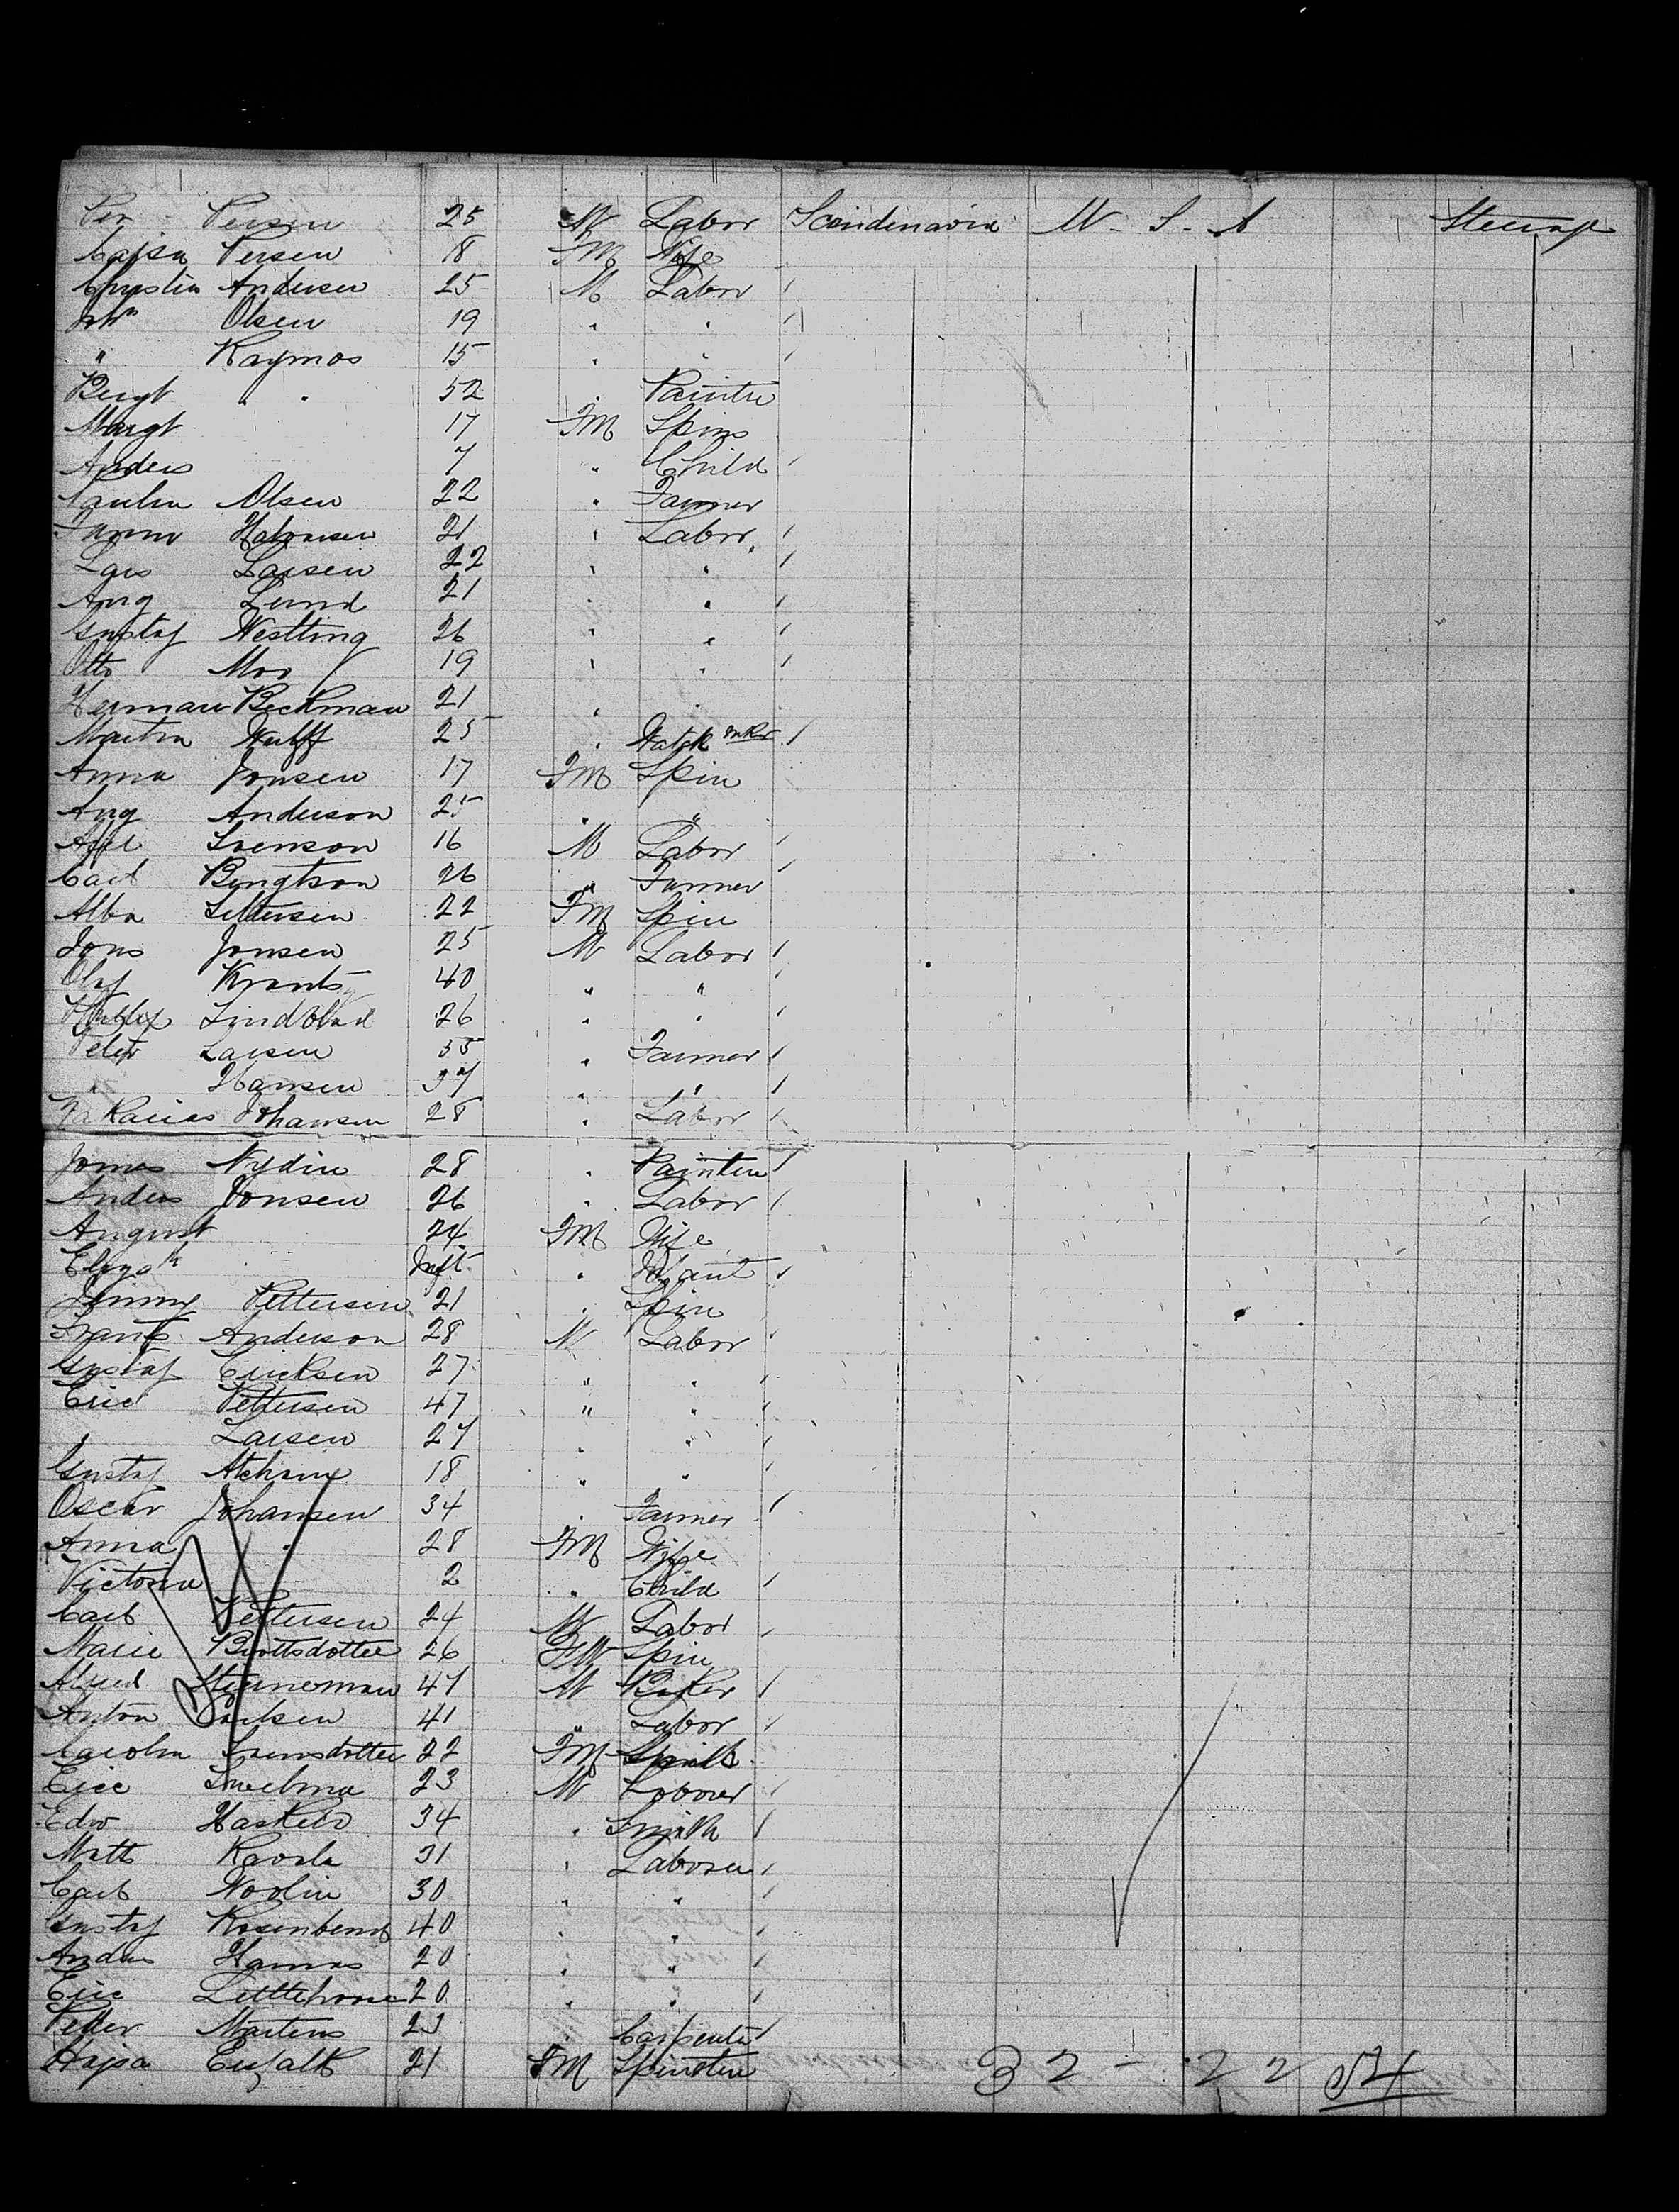 Per Persen 25 M Labor Scandenavia U - S - A Steerage
Cajsa Persen 18 FM Wife
Christin Andersen 25 M Labor
Joh<sup>n</sup> Olsen 19 " "
" Raymos 15 " "
Bengt " " 52 " Painter
Margt 17 FM Spins
Anders 7 " Child
Olsen 22 " Farmer
Halvorsen 21 " Labor
Lars Larsen 22 " "
Aug Lund 21 " "
Gustaf Westling 26 " "
Otto Moo 19 " "
Herman Beckman 21 " "
Martin Wulff 25 " Watch mkr
Anna Jonsen 17 FM Spin
Aug Anderson 25 " "
Axel Svenson 16 M Labor
Carl Bengtson 26 " Farmer
Alba Settersen 22 FM Spin
Jons Jonsen 25 M Labor
Olaf Krants 40 " "
Lindblad 26 " "
Peter Larsen 35 " Farmer
" Hansen 37 " "
Zakarias Johansen 28 " Labor
Jonas Nydin 28 " Painter
Anders Jonsen 26 " Labor
August 24 FM Wife
Elizs<sup>h</sup> Inft " Infant
Jenny Pettersen 21 " Spin
Frants Anderson 28 M Labor
Gustaf Ericksen 27 " "
Eric Pettersen 47 " "
" Larsen 27 " "
Gustaf 18 " "
Oscar Johansen 34 " Farmer
Anna " 28 FM Wife
Victoria 2 " Child
Carl Pettersen 24 M Labor
Marie Brottsdotter 26 FM Spin
Stenneman 47 M Baker
Anton Paulsen 41 " Labor
Carolin Svensdotter 22 FM
Eric 23 M Laborer
Edw Haskell 34 " Smith
Matts Kavala 31 " Laborer
Carl Nolin 30 " "
Gustaf 40 " "
Anders Hannas 20 " "
Eric 20 " "
Petter Martens 23 " Carpenter
Kajsa 21 FM Spinster
32 - 22 54